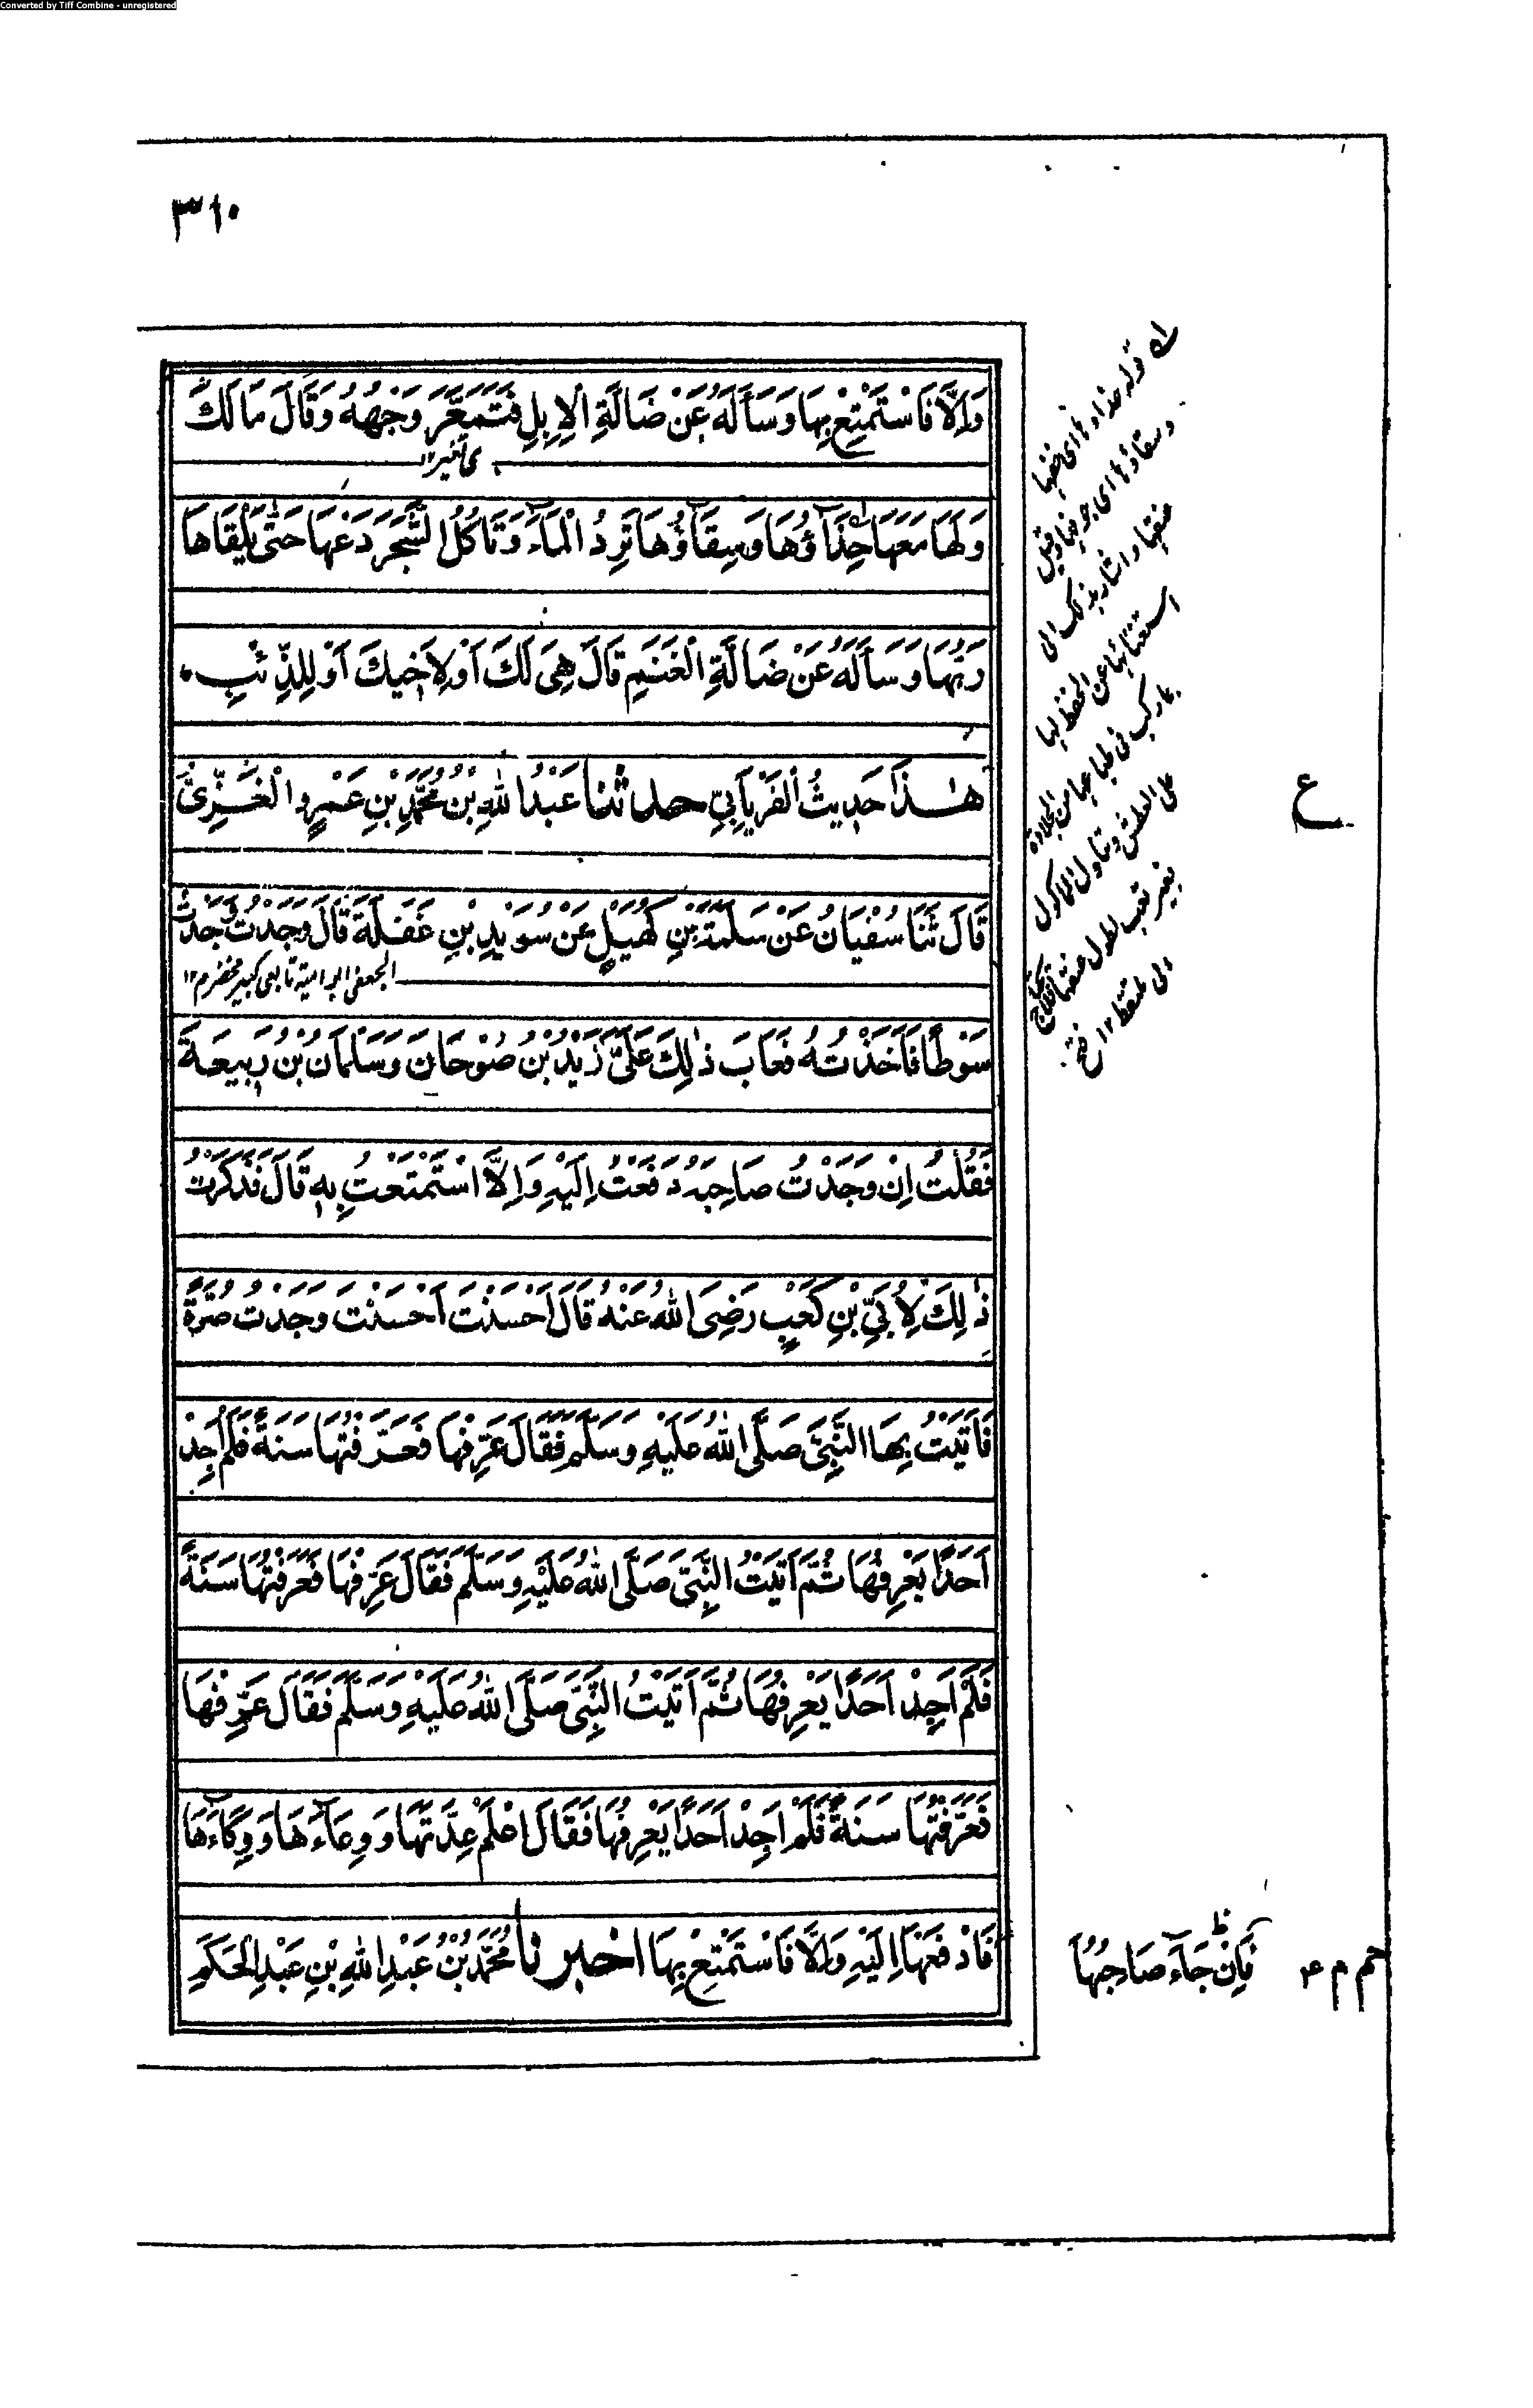 Converted by Tiff Combine - unregistered
٣٦٠
وَاِلَّا فَاسْتَمْتِعْ بِهَا وَسَأَلَهُ عَنْ ضَالَّةِ الْاِبِلِ فَتَمَعَّرَ وَجْهُهُ وَقَالَ مَالَكَ
اى تغير١٢
وَلَهَا مَعَهَا حِذَاؤُهَا وَسِقَاؤُهَا تَرِدُ الْمَاءَ وَتَاكُلُ الشَّجَرَ دَعْهَا حَتّٰى يَلْقَاهَا
رَبُّهَا وَسَأَلَهُ عَنْ ضَالَّةِ الْغَنَمِ قَالَ هِىَ لَكَ اَوْ لِاَخِيكَ اَوْ لِلذِّئْبِ
هٰذَا حَدِيثُ الْفَرْيَابِىِّ حدثنا عَبْدُ اللهِ بْنُ مُحَمَّدِ بْنِ عَمْرٍو الْغَزِّىُّ
قَالَ ثَنَا سُفْيَانُ عَنْ سَلَمَةَ بْنِ كُهَيْلٍ عَنْ سُوَيْدِ بْنِ غَفَلَةَ قَالَ وَجَدْتُ
الجعفى ابو امية تابعى كبير مخضرم١٢
سَوْطًا فَاَخَذْتُهُ فَعَابَ ذٰلِكَ عَلَىَّ زَيْدُ بْنُ صُوْحَانَ وَسَلْمَانُ بْنُ رَبِيعَةَ
فَقُلْتُ اِنْ وَجَدْتُ صَاحِبَهُ دَفَعْتُ اِلَيْهِ وَاِلَّا اسْتَمْتَعْتُ بِهٖ قَالَ فَذَكَرْتُ
ذٰلِكَ لِاُبَىِّ بْنِ كَعْبٍ رَضِىَ اللهُ عَنْهُ قَالَ اَحْسَنْتَ اَحْسَنْتَ وَجَدْتُ صُرَّةً
فَاَتَيْتُ بِهَا النَّبِىَّ صَلَّى اللهُ عَلَيْهِ وَسَلَّمَ فَقَالَ عَرِّفْهَا فَعَرَّفْتُهَا سَنَةً فَلَمْ اَجِدْ
اَحَدًا يَعْرِفُهَا ثُمَّ اَتَيْتُ النَّبِىَّ صَلَّى اللهُ عَلَيْهِ وَسَلَّمَ فَقَالَ عَرِّفْهَا فَعَرَّفْتُهَا سَنَةً
فَلَمْ اَجِدْ اَحَدًا يَعْرِفُهَا ثُمَّ اَتَيْتُ النَّبِىَّ صَلَّى اللهُ عَلَيْهِ وَسَلَّمَ فَقَالَ عَرِّفْهَا
فَعَرَّفْتُهَا سَنَةً فَلَمْ اَجِدْ اَحَدًا يَعْرِفُهَا فَقَالَ اعْلَمْ عِدَّتَهَا وَوِعَاءَهَا وَوِكَاءَهَا
فَادْفَعْهَا اِلَيْهِ وَاِلَّا فَاسْتَمْتِعْ بِهَا اخبرنا مُحَمَّدُ بْنُ عَبْدِ اللهِ بْنِ عَبْدِ الْحَكَمِ
قوله حذاؤها اى خفها
وسقاؤها اى جوفها وقيل
عنقها واشار بذلك الى
استغنائها عن الحفظ لها
بما ركب فى طباعها من الجلادة
على العطش وتناول الماكول
بغير تعب لطول عنقها فلا تحتاج
الى ملتقط ١٢ فتح
ع
فَاِنْ جَاءَ صَاحِبُهَا